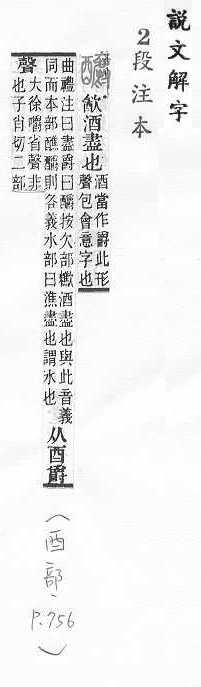 說文解字
2段注本
釂 㱃酒盡也
酒當作爵此形
聲包會意字也
曲禮注曰盡爵曰釂按欠部酒盡也與此音義
同而本部醮釂則各義水部曰潐盡也謂水也
从酉爵
聲
大徐嚼省聲非
也子肖切二部
(酉部,P.756)